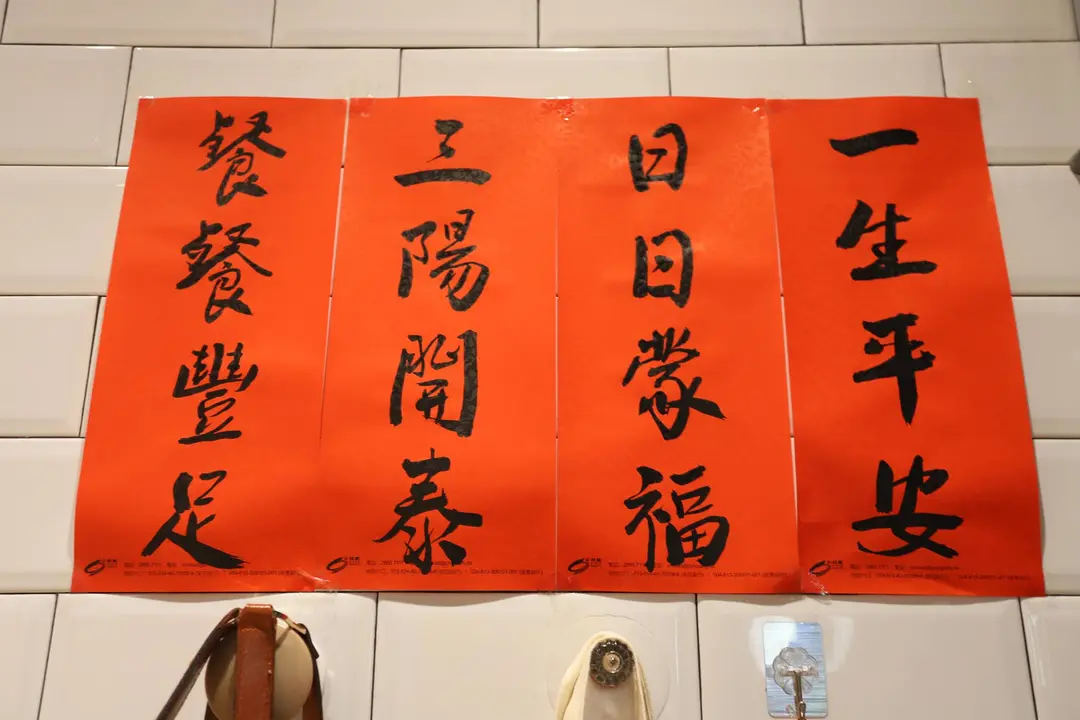 一生平安
日日蒙福
三陽開泰
餐餐豐足